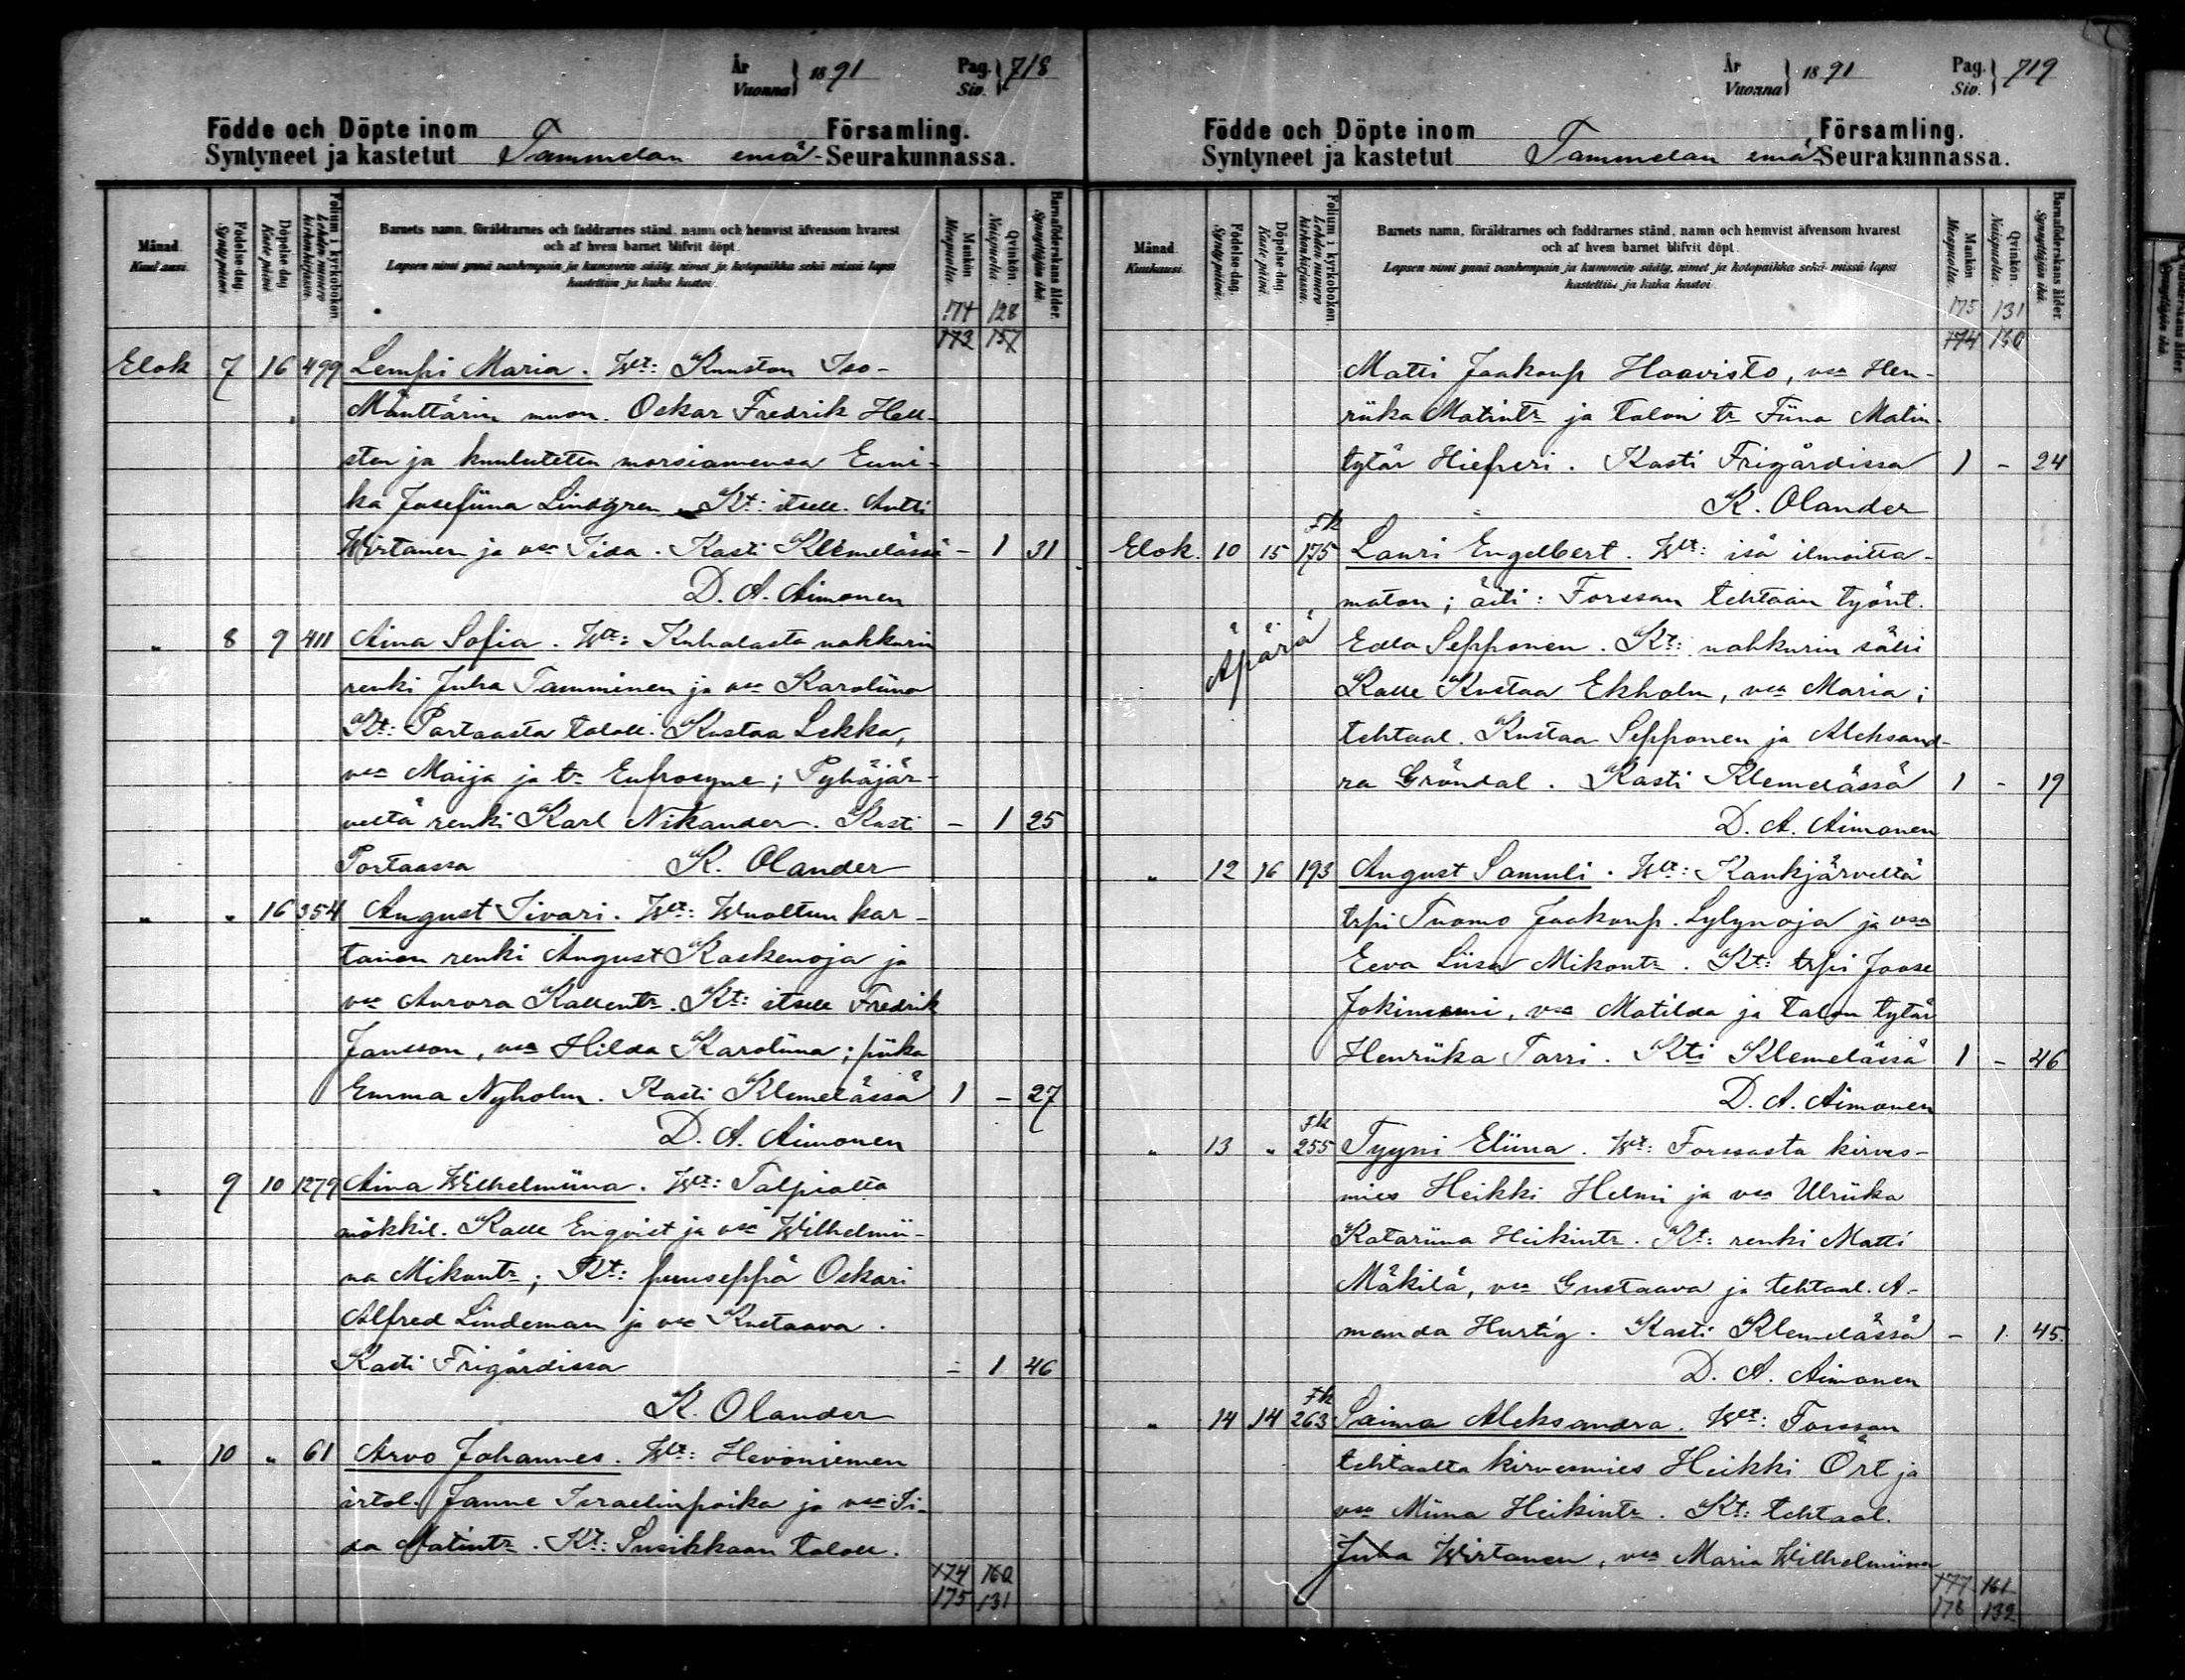 År
Vuonna } 1891 Pag.
Siv. } 718
Födde och Döpte inom Tammelan emä- Församling.
Syntyneet ja kastetut Seurakunnassa.
Månad. Kuukausi.
Födelse-dag. Synty päivä.
Döpelse-dag. Kaste päivä.
Folium i kyrkoboken. Lehden numero kirkonkirjassa.
Barnets namn, föräldrarnes och faddrarnes stånd, namn och hemvist äfvensom hvarest
och af hvem barnet blifvit döpt.
Lapsen nimi ynnä vanhempain ja kummein sääty, nimet ja kotopaikka sekä missä lapsi
kastettiin ja kuka kastoi.
Mankön. Miespuolta.
Qvinkön. Naispuolta.
Barnaföderskans ålder. Synnyttäjän ikä.
174 128
173 157
Elok 7 16 499 Lempi Maria. Wt: Kuuston Iso-
Mänttärin muon. Oskar Fredrik Hell-
sten ja kuulutettu morsiamensa Euni-
ka Josefiina Lindgren. Kt: itsell. Antti
Wirtanen ja vsa Iida. Kasti Klemelässä - 1 31
D. A. Aimonen
" 8 9 411 Aina Sofia. Wt: Kuhalasta nahkurin
renki Juha Tamminen ja vsa Karoliina
Kt: Portaasta taloll. Kustaa Lekka,
vsa Maija ja tr Eufrosyne; Pyhäjär-
veltä renki Karl Nikander. Kasti - 1 25
Portaassa K. Olander
" " 16 354 August Iivari. Wt: Wuoltun kar-
tanon renki August Koskenoja ja
vsa Aurora Kallentr. Kt: itsell Fredrik
Jansson, vsa Hilda Karoliina; piika
Emma Nyholm. Kasti Klemelässä 1 - 27
D. A. Aimonen
" 9 10 1279 Aina Wilhelmiina. Wt: Talpialta
mökkil. Kalle Enqvist ja vsa Wilhelmii-
na Mikontr; Kt: puuseppä Oskari
Alfred Lindeman ja vsa Kustaava.
Kasti Frigårdissa - 1 46
K. Olander
" 10 " 61 Arvo Johannes. Wt: Hevoniemen
irtol. Janne Israelinpoika ja vsa Ii-
da Matintr. Kt: Susikkaan taloll.
174 160
175 131
År
Vuonna } 1891 Pag.
Siv. } 719
Födde och Döpte inom Tammelan emä Församling.
Syntyneet ja kastetut Seurakunnassa.
Månad. Kuukausi.
Födelse-dag. Synty päivä.
Döpelse-dag. Kaste päivä.
Folium i kyrkoboken. Lehden numero kirkonkirjassa.
Barnets namn, föräldrarnes och faddrarnes stånd, namn och hemvist äfvensom hvarest
och af hvem barnet blifvit döpt.
Lapsen nimi ynnä vanhempain ja kummein sääty, nimet ja kotopaikka sekä missä lapsi
kastettiin ja kuka kastoi.
Mankön. Miespuolta.
Qvinkön. Naispuolta.
Barnaföderskans ålder. Synnyttäjän ikä.
175 131
174 160
Matti Jaakonp Haavisto, vsa Hen-
riika Matintr ja talon tr Fiina Matin-
tytär Hieperi. Kasti Frigårdissa 1 - 24
K. Olander
Elok. 10 15 Fk 175 Lauri Engelbert. Wt: isä ilmoitta-
maton; äiti: Forssan tehtaan työnt.
Äpärä Edla Sepponen. Kt: nahkurin sälli
Kalle Kustaa Ekholm, vsa Maria;
tehtaal. Kustaa Sepponen ja Aleksand-
ra Gröndal. Kasti Klemelässä 1 - 19
D. A. Aimonen
" 12 16 193 August Samuli. Wt: Kaukjärveltä
trpi Tuomo Jaakonp. Lylynoja ja vsa
Eeva Liisa Mikontr. Kt: trpi Joose
Jokiniemi, vsa Matilda ja talon tytär
Henriika Tarri. Kti Klemelässä 1 - 46
D. A. Aimonen
" 13 " Fk 255 Tyyni Eliina. Wt: Forssasta kirves-
mies Heikki Helmi ja vsa Ulriika
Katariina Heikintr. Kt: renki Matti
Mäkilä, vsa Gustaava ja tehtaal. A-
manda Hurtig. Kasti Klemelässä - 1 45.
D. A. Aimonen
" 14 14 Fk 263 Saima Aleksandra. Wt: Forssan
tehtaalta kirvesmies Heikki Ört ja
vsa Miina Heikintr. Kt: tehtaal.
Juha Wirtanen, vsa Maria Wilhelmiina
177 161
178 132